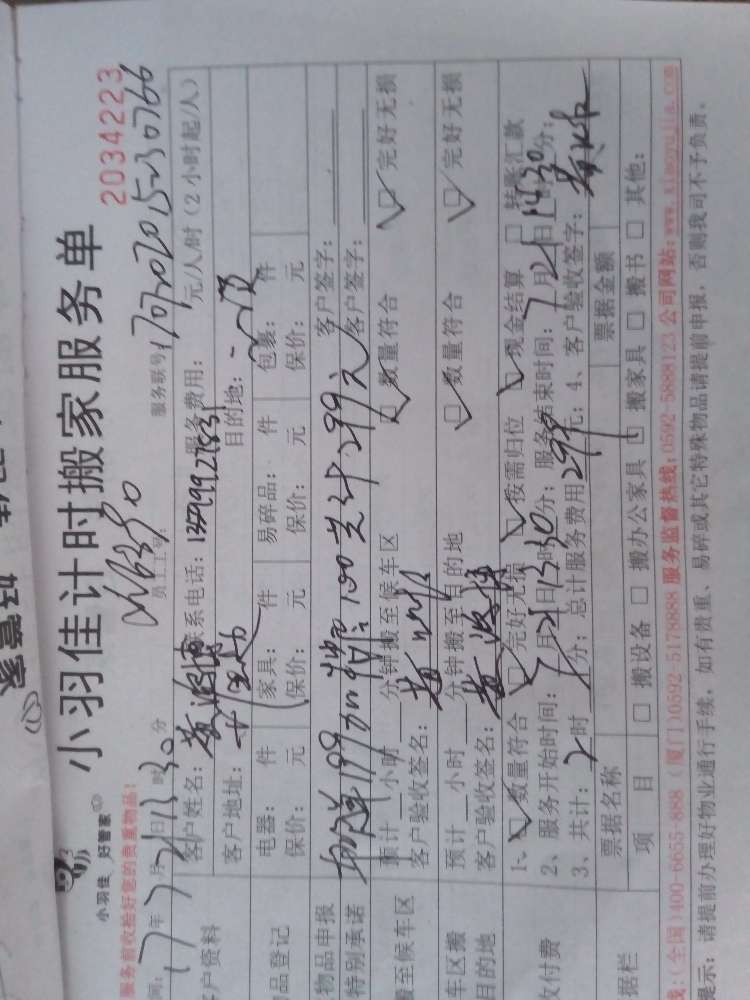 小羽佳计时搬家服务单
2034223
小羽佳 好管家
服务前收捡好您的贵重物品!
员工工号:
服务联号:
间: 17年7月21日13时30分
客户姓名: 联系电话: 服务费用: 元/人/时(2小时起/人)
客户地址: 目的地:
户资料
电器: 件 家具: 件 易碎品: 件 包裹: 件
保价: 元 保价: 元 保价: 元 保价: 元
品登记
物品申报 客户签字:
特别承诺 客户签字:
199 100 共计299元
预计 小时 分钟搬至候车区 数量符合 完好无损
客户验收签名:
搬至候车区
预计 小时 分钟搬至目的地 数量符合 完好无损
客户验收签名:
车区搬
目的地
1、 数量符合 完好无损 按需归位 现金结算 转账汇款
2、服务开始时间: 7月21日13时30分; 服务结束时间: 7月21日14时30分;
3、共计: 2时 分; 总计服务费用299元; 4、客户验收签字:
收付费
票据名称 票据金额
项 目 搬设备 搬办公家具 搬家具 搬书 其他:
据栏
线:(全国)400-6655-888 (厦门)0592-5178888 服务监督热线:0592-5888123 公司网站:www.xiaoyujia.com
提示: 请提前办理好物业通行手续, 如有贵重、易碎或其它特殊物品请提前申报, 否则我司不予负责。